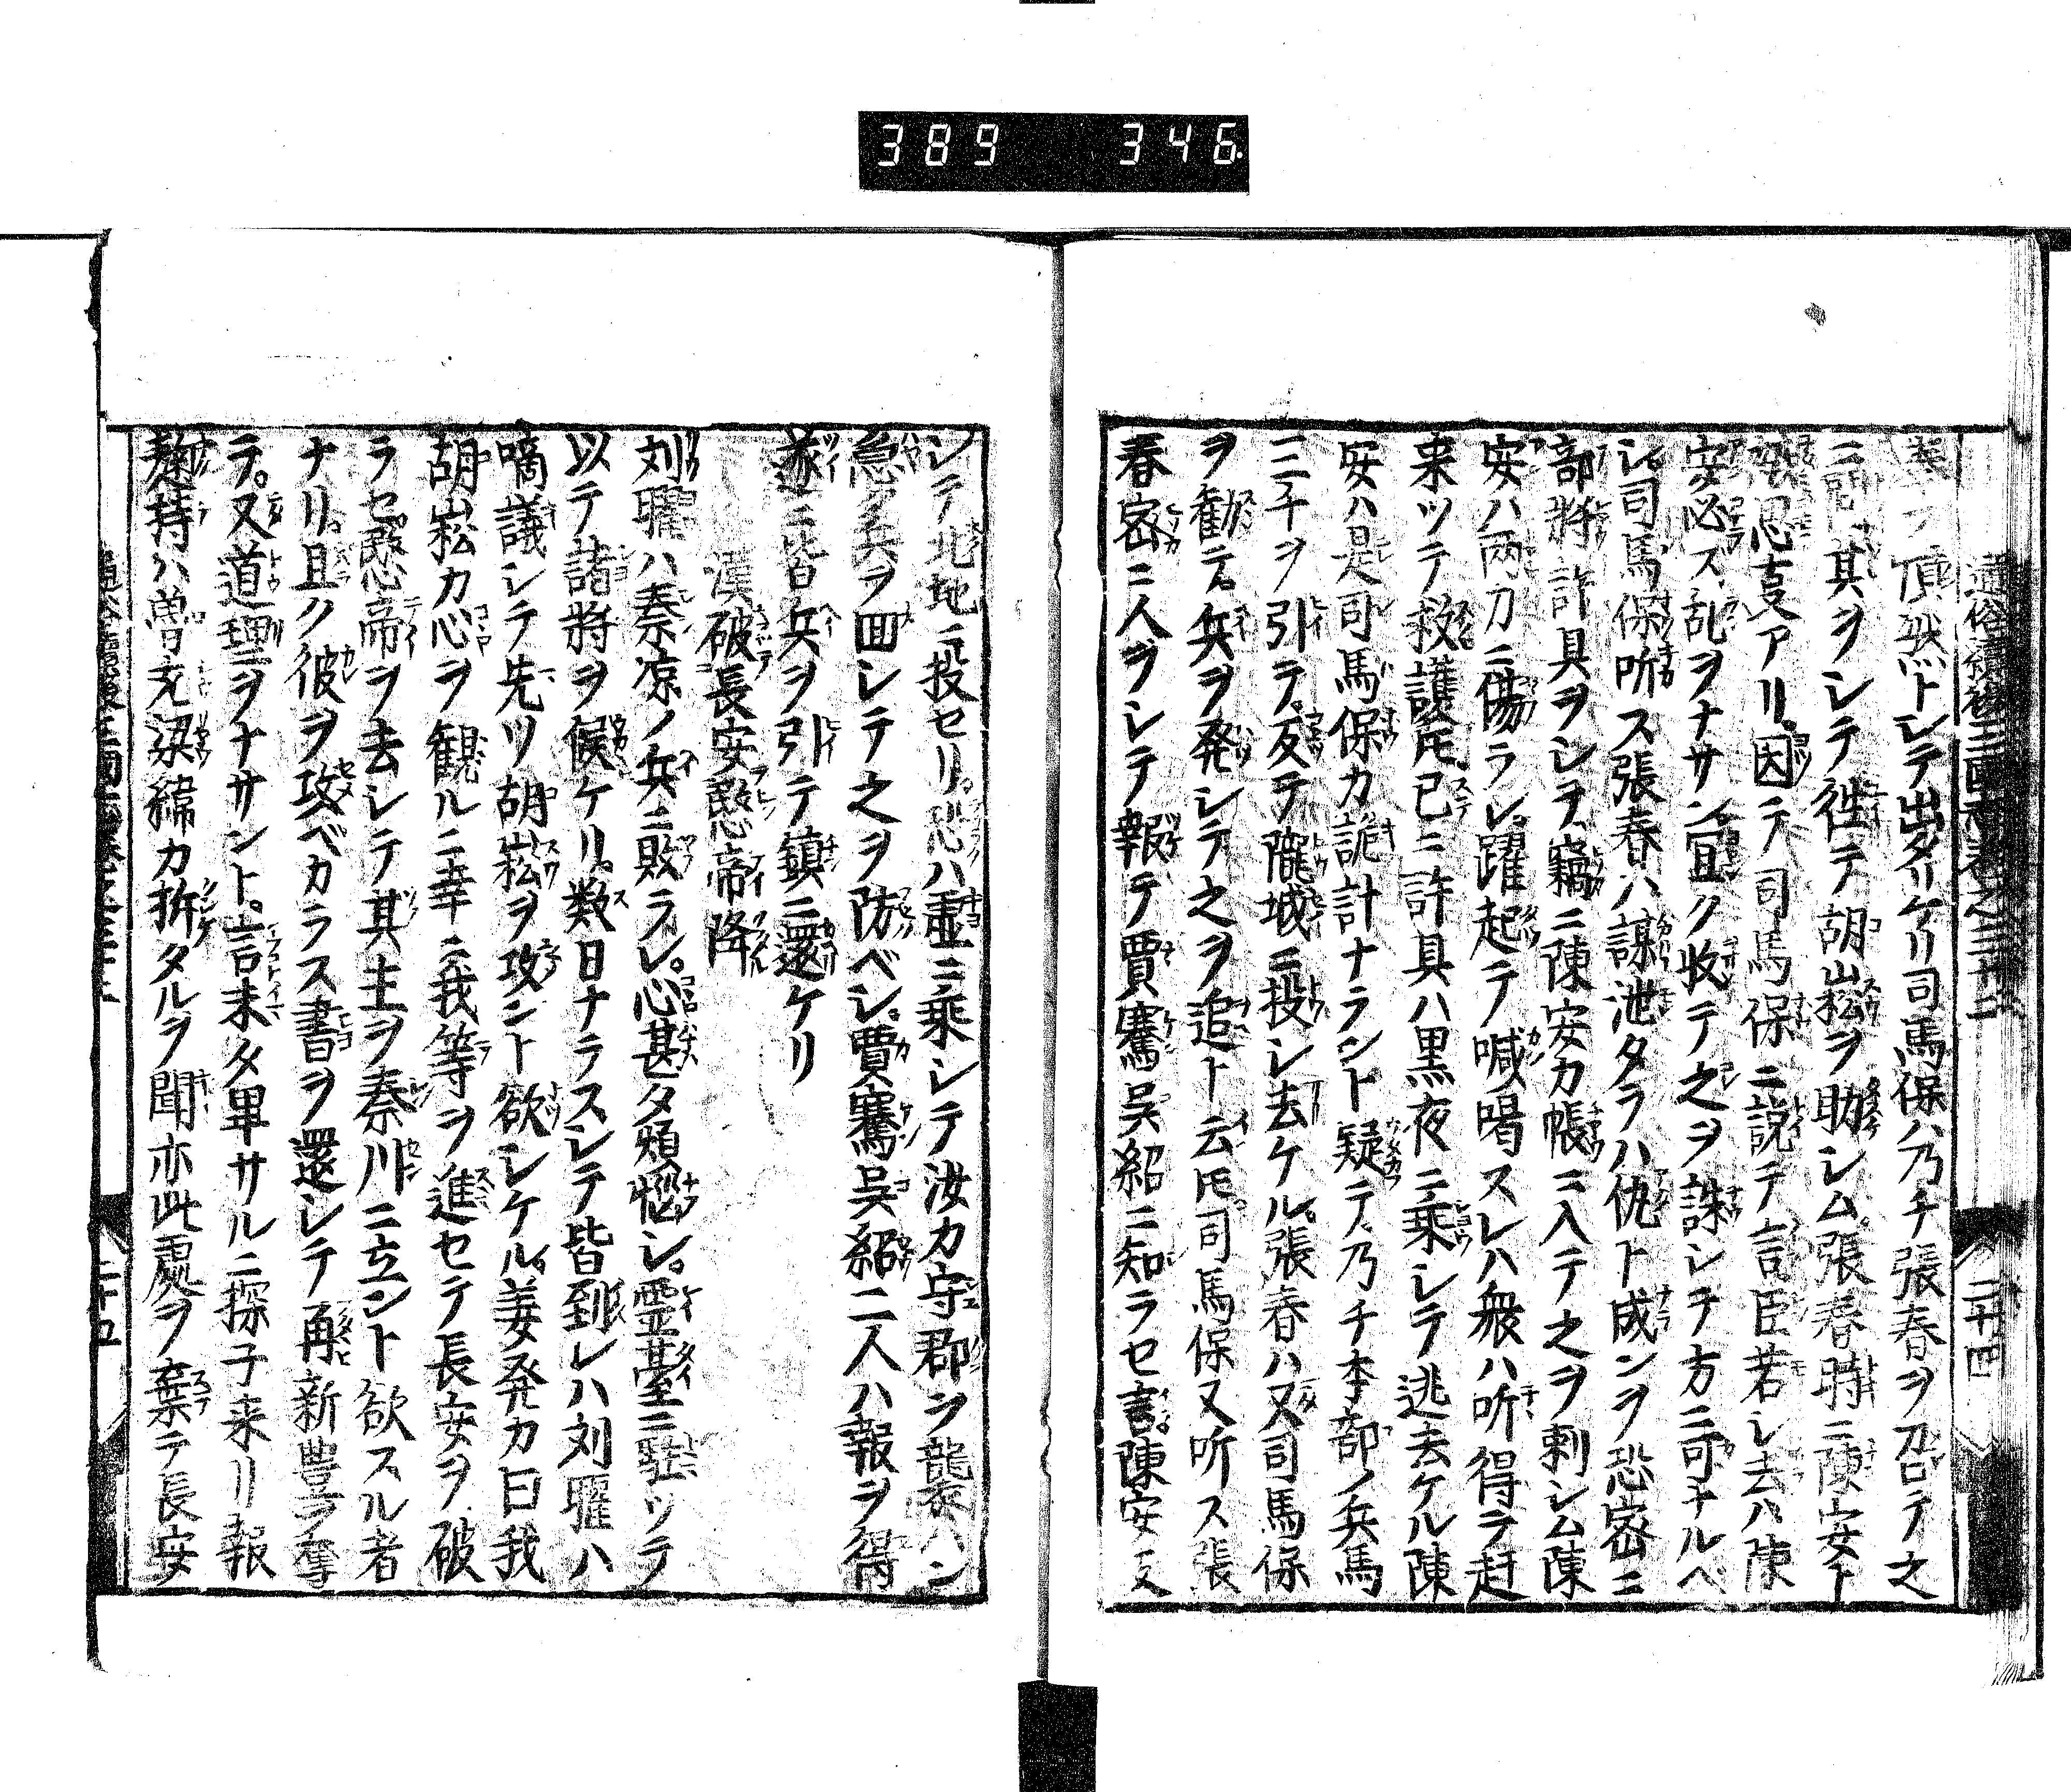 389 346
通俗續後三國志卷之三十三 二十四
頂然トシテ出タリケリ司馬保ハ乃チ張春ヲ召テ之
ニ其ヲシテ往テ胡崧ヲ助シム張春時ニ陳安ト
忌叓アリ因テ司馬保ニ説テ言臣若シ去ハ陳
安必ス乱ヲナサン宜ク收テ之ヲ誅シテ方ニ可ナルベ
シ司馬保听ス張春ハ謀泄タラハ仇ト成ンヲ恐密ニ
部將許具ヲシテ竊ニ陳安カ帳ニ入テ之ヲ刺シム陳
安ハ兩刀ニ傷ラレ躍起テ喊喝スレハ衆ハ听得テ赶
来ツテ救護㐧已ニ許具ハ黒夜ニ乗シテ逃去ケル陳
安ハ是司馬保カ詭計ナラント疑テ乃チ李部ノ兵馬
三千ヲ引テ反テ隴城ニ投シ去ケル張春ハ又司馬保
ヲ勸テ兵ヲ発シテ之ヲ追ト云㐧司馬保又听ス張
春密ニ人ヲシテ報テ賈騫呉紹ニ知ラセ言陳安反
シテ北地ニ投セリ恐ハ虚ニ乗シテ汝カ守郡ヲ襲ハン
急ク兵ヲ回シテ之ヲ防ベシ賈騫呉紹二人ハ報ヲ得
遂ニ皆兵ヲ引テ鎮ニ還ケリ
漢破長安愍帝降
刘曜ハ秦凉ノ兵ニ敗ラレ心甚タ煩惱シ霊臺ニ駐ツテ
以テ諸將ヲ候ケリ数日ナラスシテ皆到レハ刘曜ハ
啇議シテ先ツ胡崧ヲ攻ント欲シケル姜発カ曰我
胡崧カ心ヲ観ルニ幸ニ我等ヲ進セテ長安ヲ破
ラセ愍帝ヲ去シテ其主ヲ秦川ニ立ント欲スル者
ナリ且ク彼ヲ攻ベカラス書ヲ還シテ再新豊ヲ奪
テ又道理ヲナサント言未タ畢サルニ探子来リ報
麹持ハ曽充梁緯カ拆タルヲ聞亦此處ヲ棄テ長安
二十五